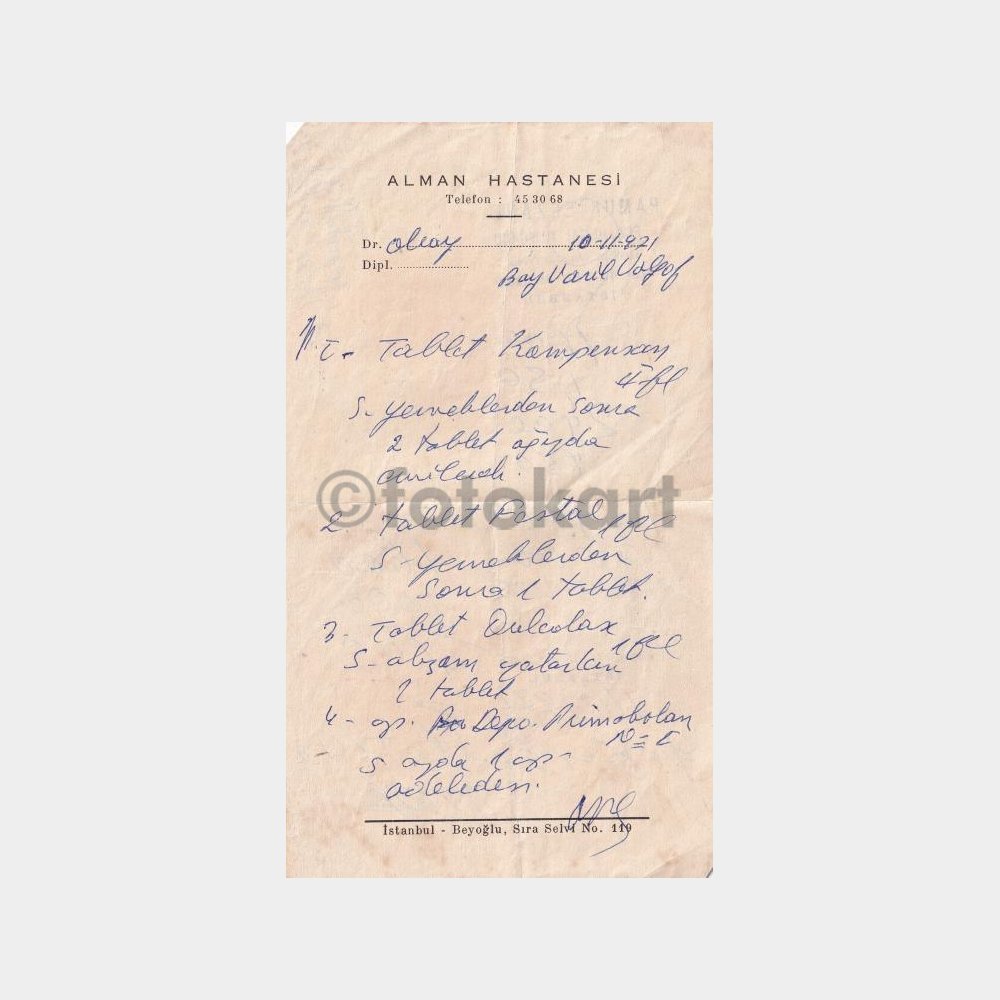 ALMAN HASTANESİ
Telefon : 45 30 68
Dr. Olcay 10-11-971
Dipl.
Bay Vasil
1 - Tablet Kompensan
S - yemeklerden sonra
2 tablet ağızda
©fotokart
2 - Tablet Festal 1 fl
S - yemeklerden
Sonra 1 tablet.
3 - Tablet Dulcolax
1 fl
S - akşam yatarken
2 tablet
4 - ap. Depo. Primobolan
N = I
S ayda 1 ap
İstanbul - Beyoğlu, Sıra Selvi No. 119